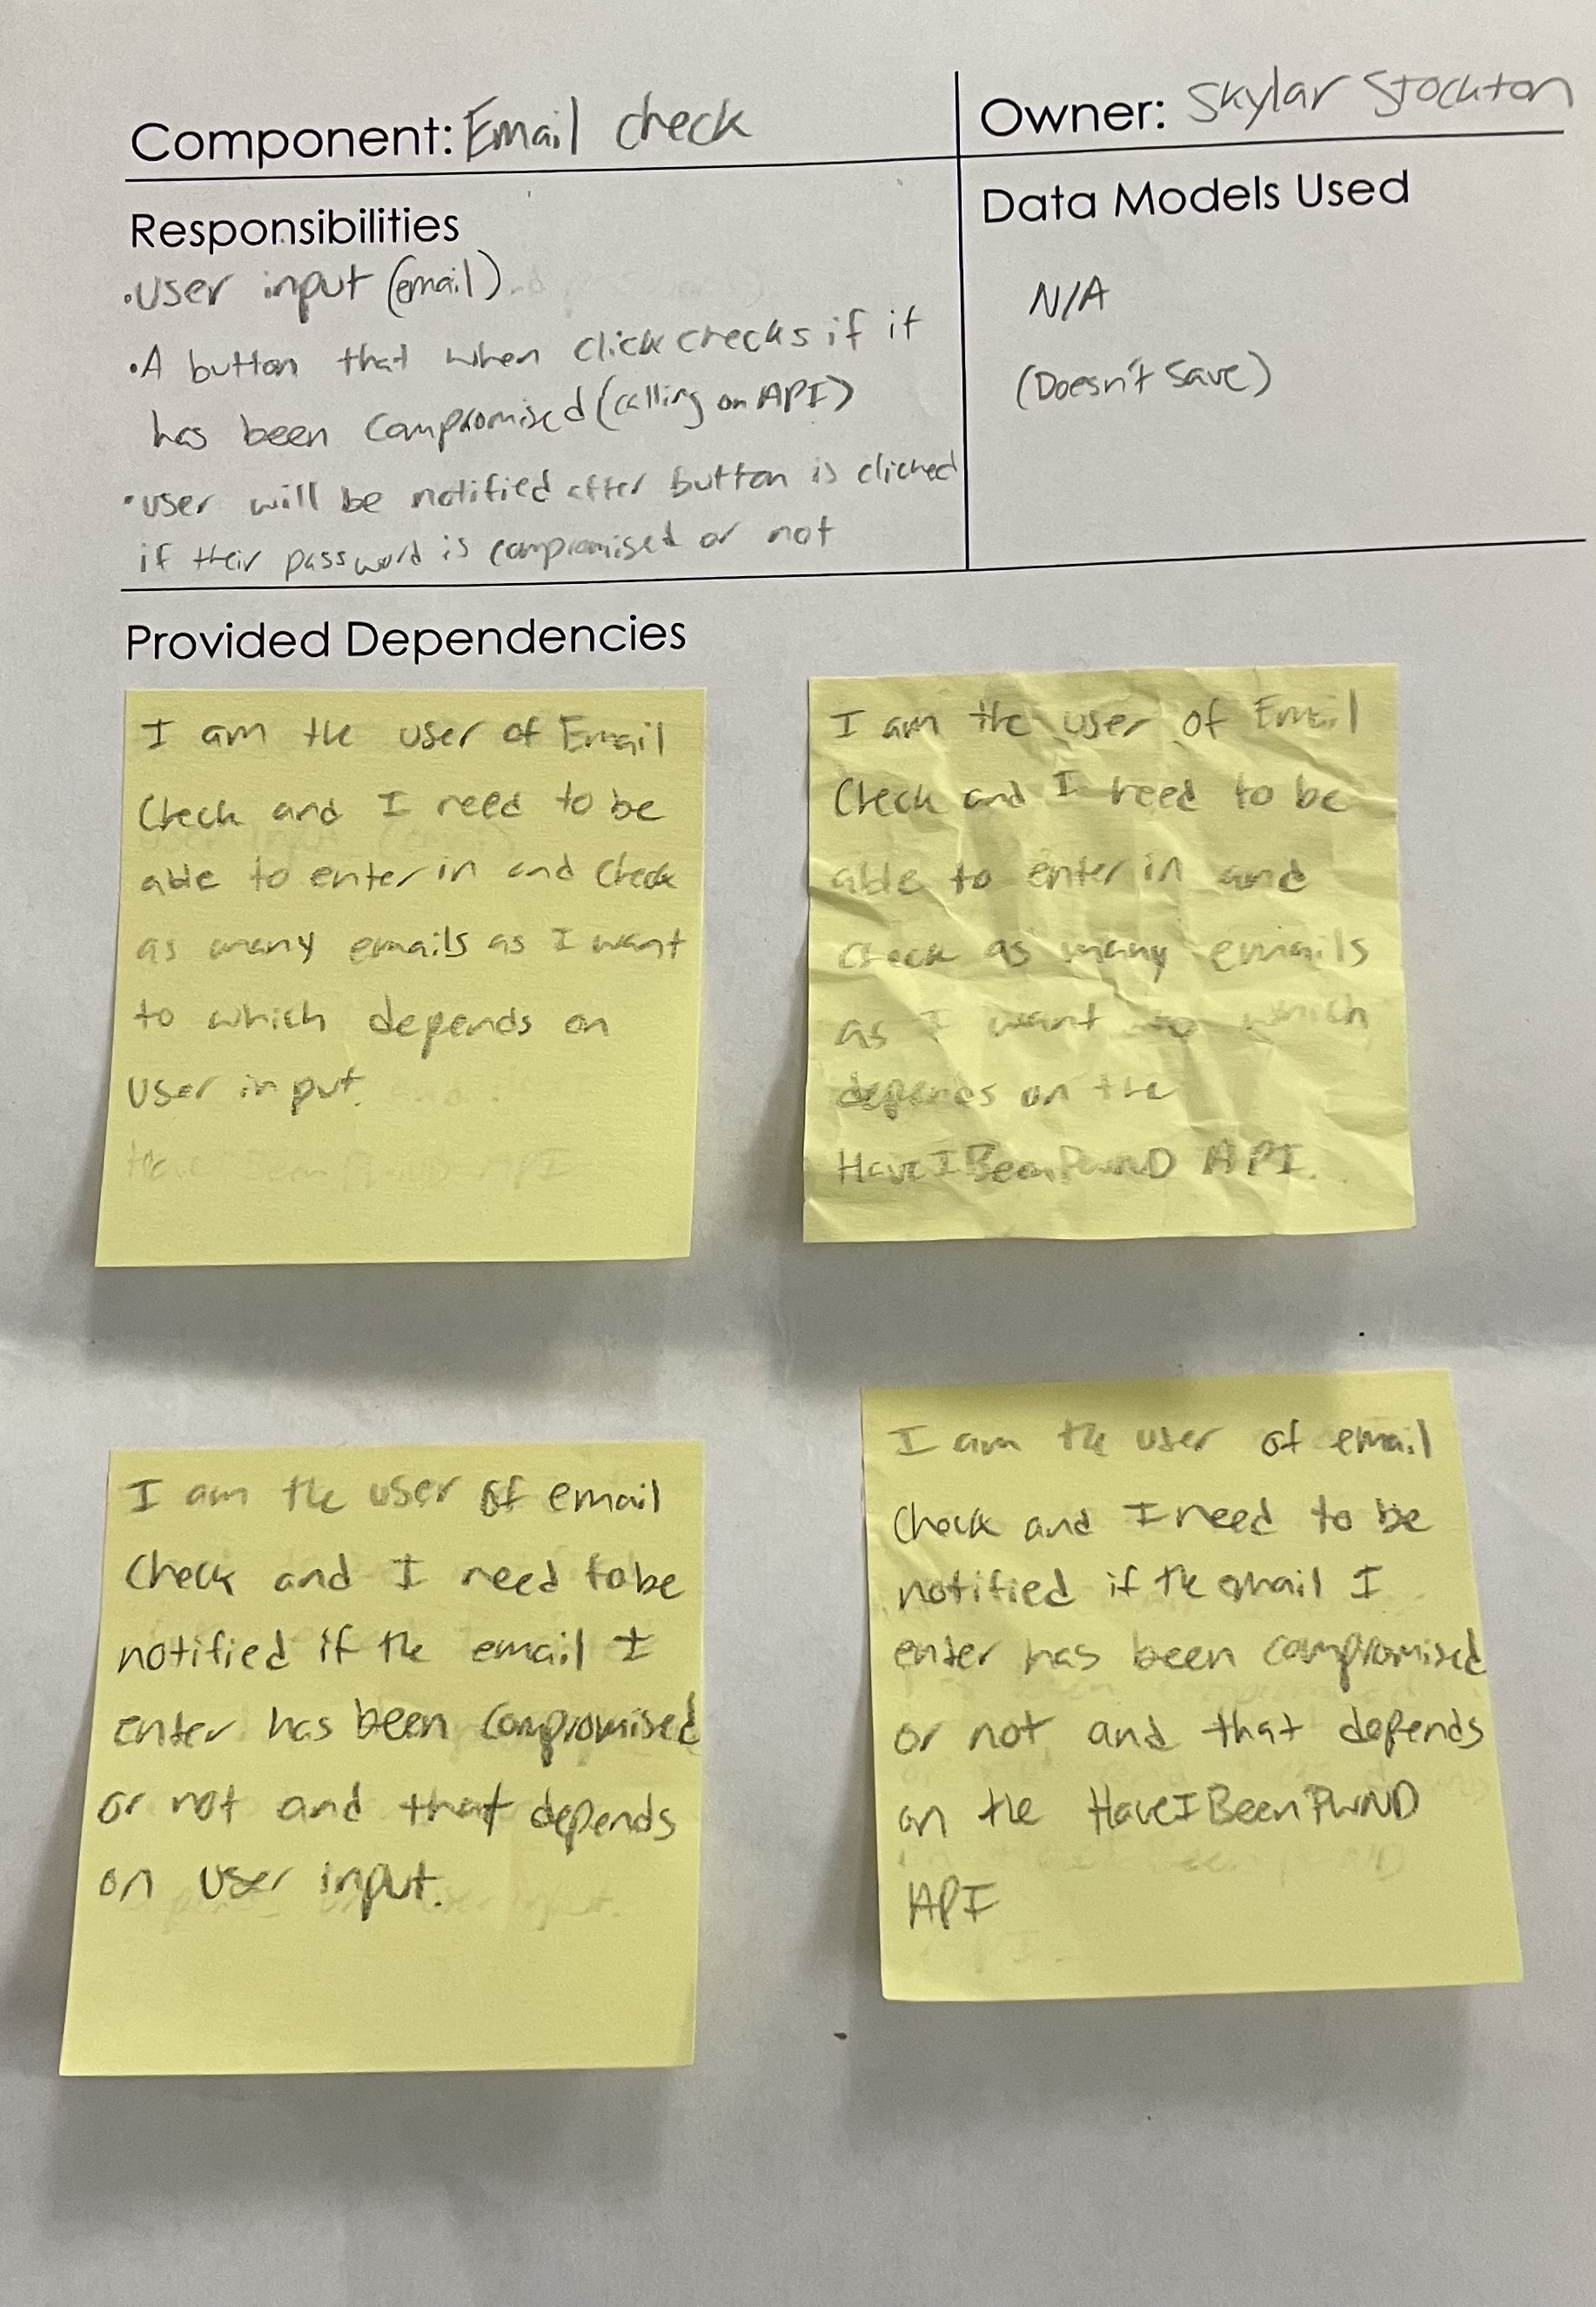 Component: Email check
Owner: Skylar Stockton
Responsibilities
•User input (email)
•A button that when click checks if it
has been compromised (calling on API)
•user will be notified after button is clicked
if their password is compromised or not
Data Models Used
N/A
(Doesn't Save)
Provided Dependencies
I am the user of Email
Check and I need to be
able to enter in and check
as many emails as I want
to which depends on
User input.
I am the user of Email
Check and I need to be
able to enter in and
check as many emails
as I want to which
depends on the
HaveIBeenPwND API.
I am the user of email
Check and I need to be
notified if the email I
enter has been compromised
or not and that depends
on user input.
I am the user of email
Check and I need to be
notified if the email I
enter has been compromised
or not and that depends
on the HaveIBeenPwND
API